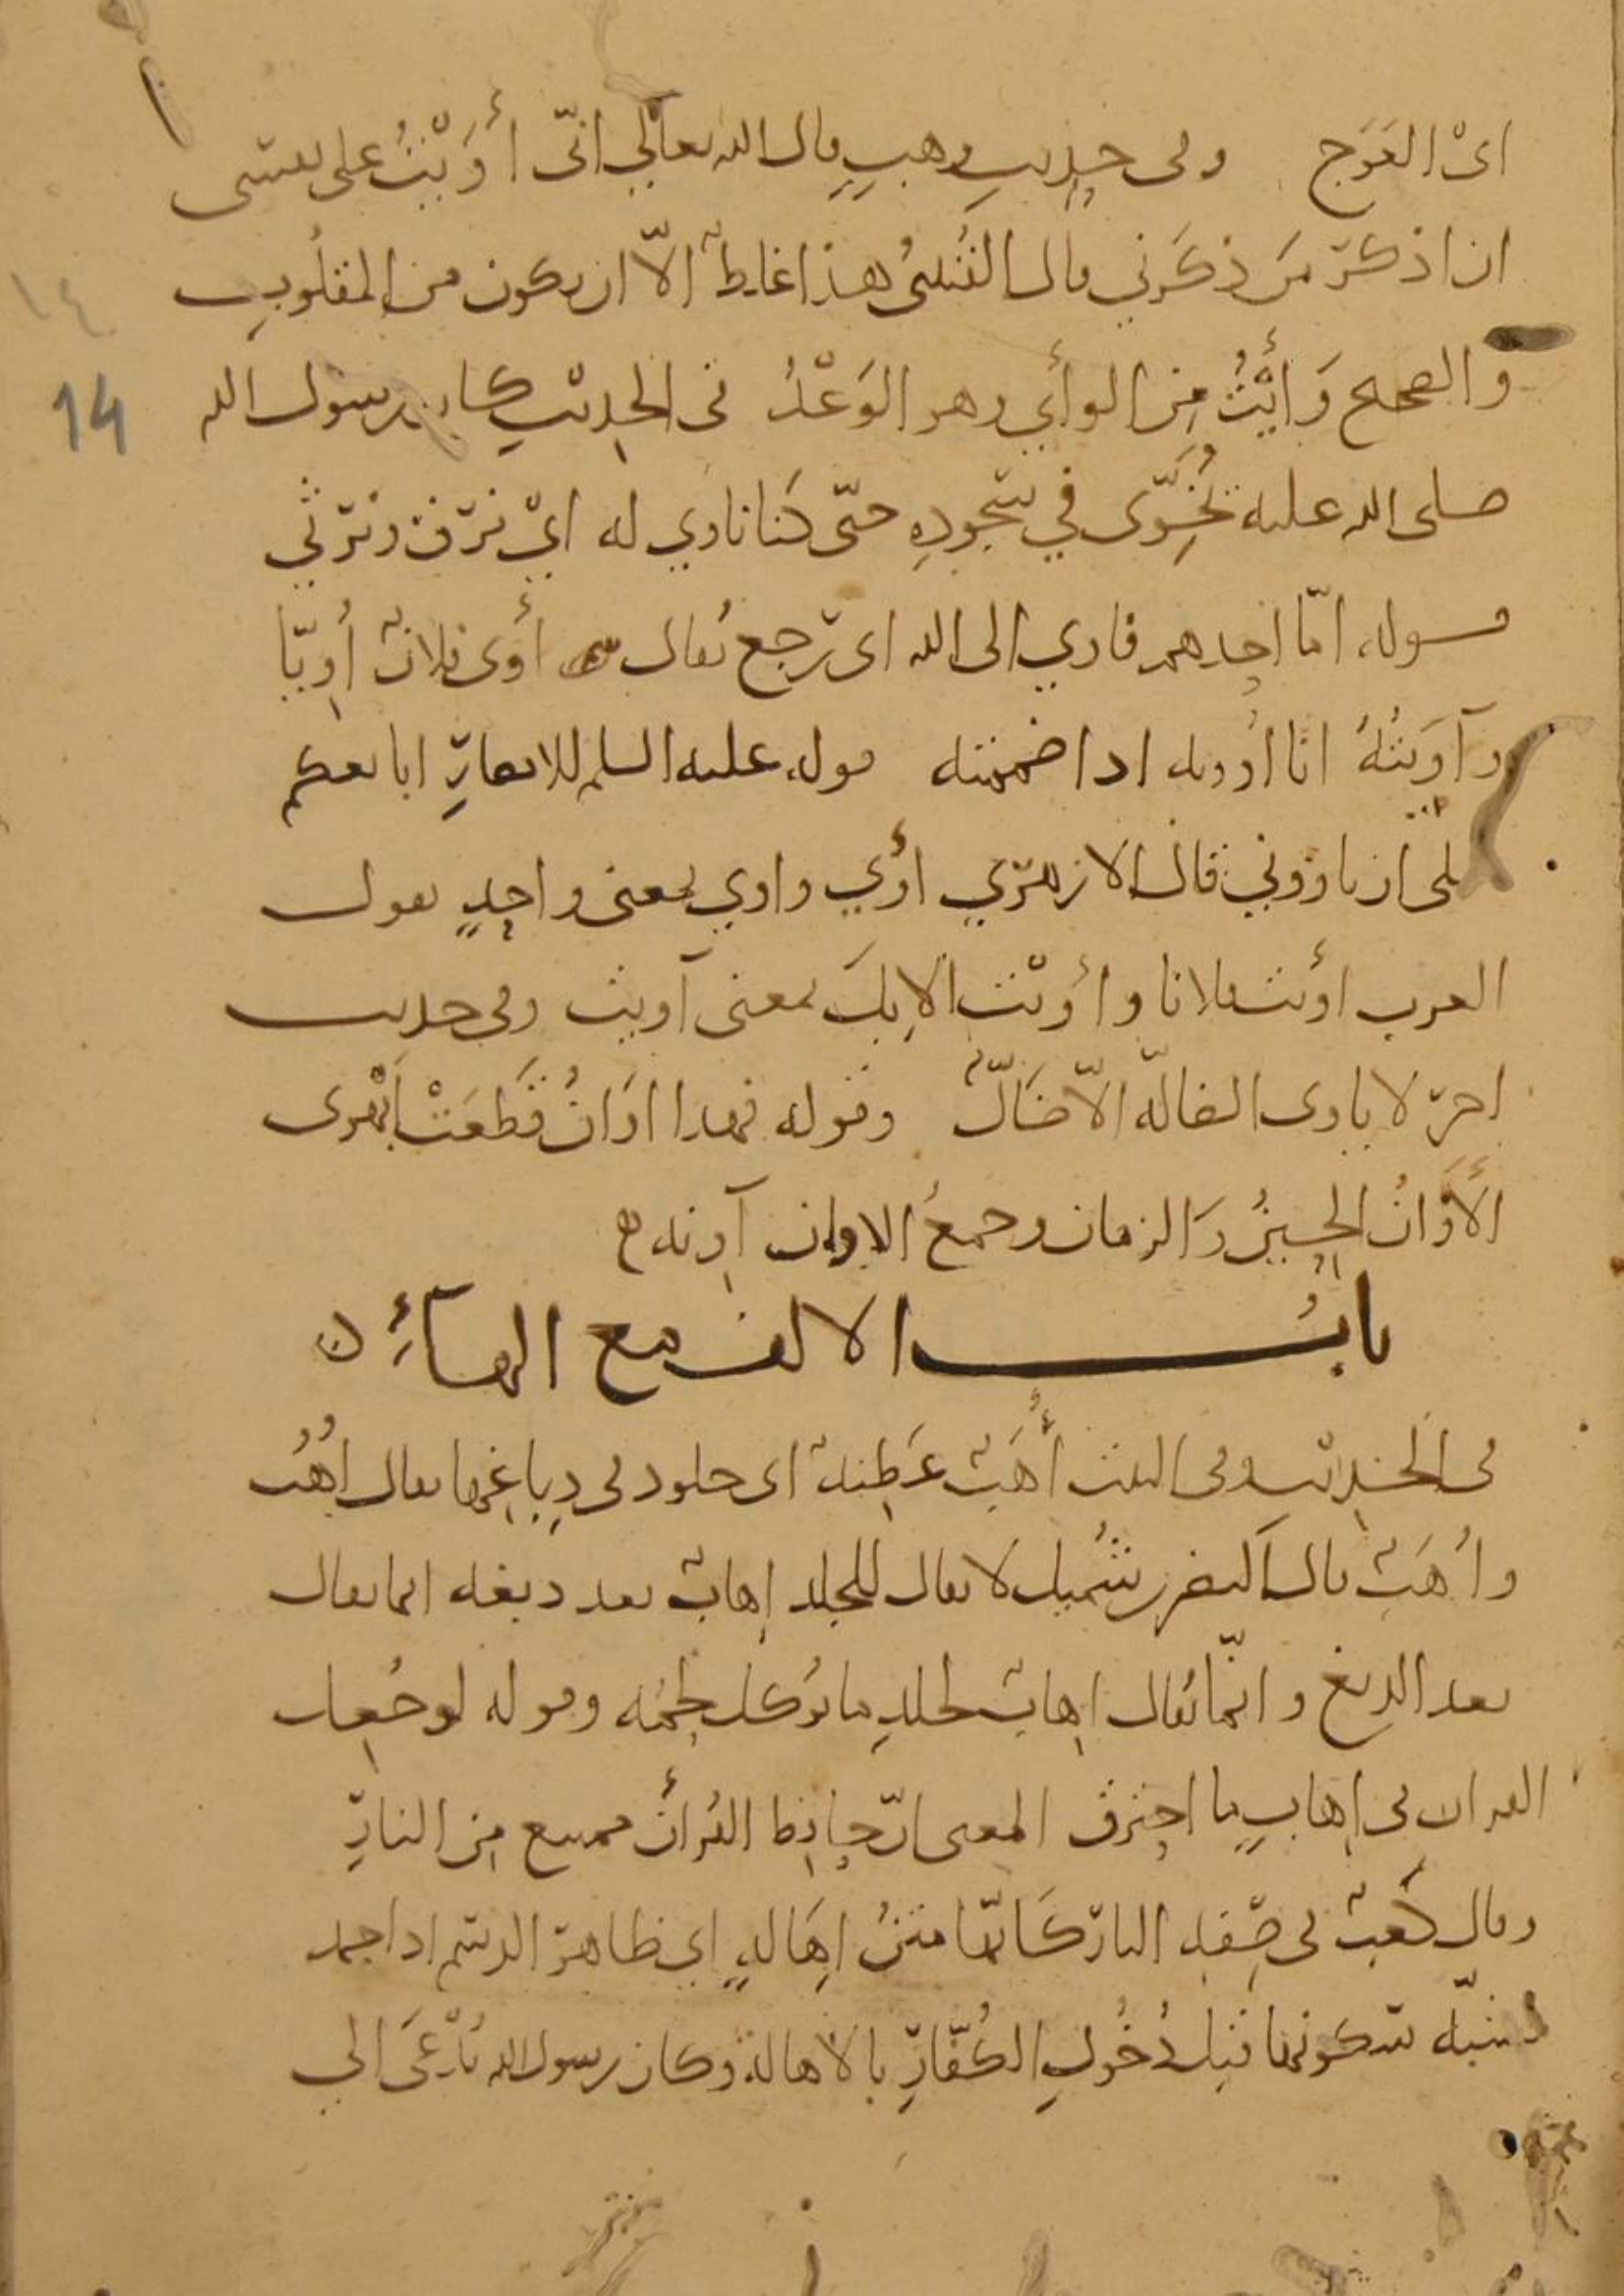 اىْ العَوَج وفى حديث وهبٍ قال الله تعالي انّى أوَيْتُ على نفسى
ان اذكر من ذكرني قال القُتَبىُ هذا غلطٌ الاّ ان يكون من المقلُوبِ
والصحيح وَأيْتُ مِن الوأي وهو الوَعْدُ فى الحديث كان رسول الله
صلى الله عليه يُخَوّى في سجودِه حتّى كنا ناوي له ايْ نرق ونرثي
قوله امّا احدهم فاوي الى الله اى رجع يُقال أوى فلانٌ أُوِيّا
وآوَيْتُهُ انا أُوويه اذا ضممته قوله عليه السلم للانصارِ ابايعكم
على ان تاووني قال الازهري أوَي واوي بمعنى واحِدٍ تقول
العرب أويت فلانا وأوَيْت الاِبِلَ بمعنى آويت وفى حديث
اخر لا ياوى الضالّه الاّ ضَالٌّ وقوله فهذا اوَانُ قَطَعَتْ أبْهرى
الأَوَانُ الحِينُ وَالزمان وجمعُ الاوان آوِنه
بابُ الالف مع الهآءِ
فى الحديث وفى البيت أُهَبٌ عَطِنهٌ اى جلود فى دِباغِها يقال اُهُب
واُهَبٌ قال النضر بن شُميل لا يقال للجلد اِهابٌ بعد دبغه انما يقال
بعد الدبغ وانّما يُقال اِهابٌ لجلدِ ما يُوكل لحمُه وقوله لو جُعِل
القران فى اِهابٍ ما احترق المعنى انّ حافِظ القُرأن ممتنع مِن النارِ
وقال كَعبٌ فى صِفه النار كَانّها متنُ اِهَالهٍ اي ظاهر الدسم اذا جمد
شبّه سكونها قبل دُخُولِ الكُفّارِ بالاهالة وكان رسول الله يُدْعَى الي
14
١٤